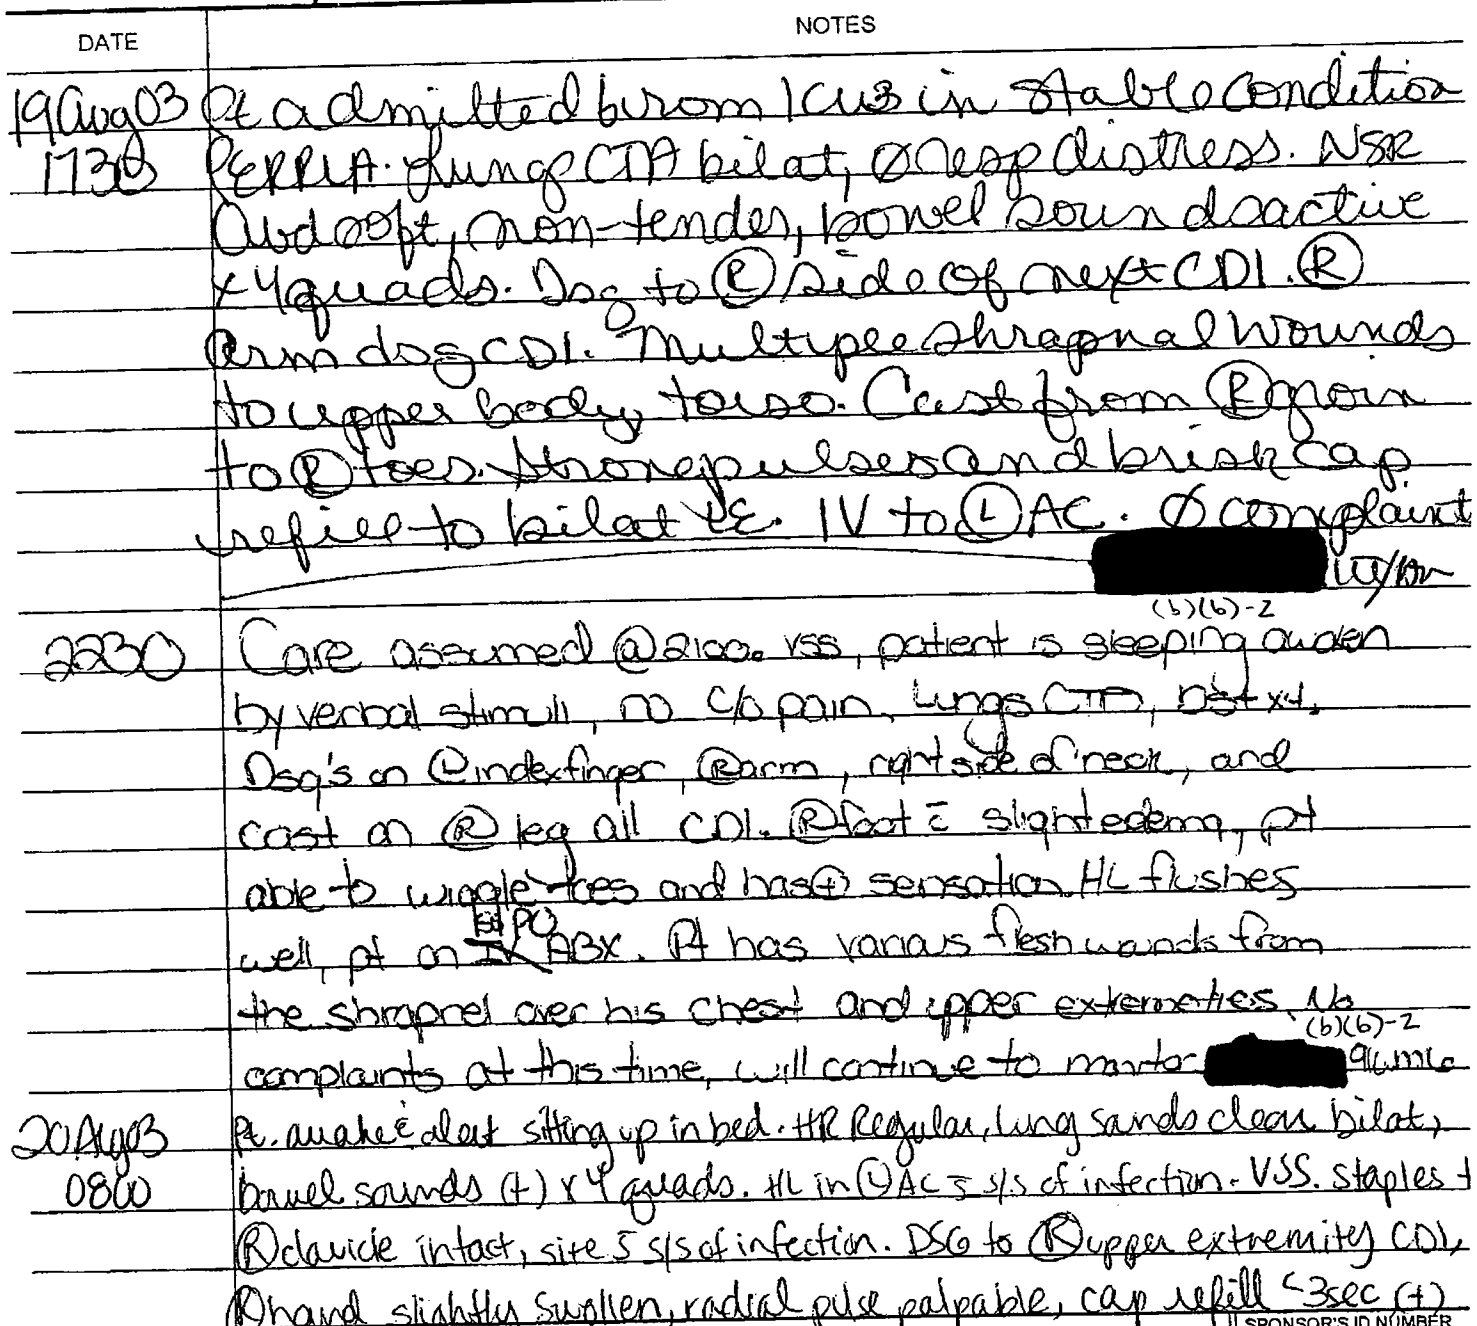 DATE NOTES
19Aug03 Pt admitted from ICU3 in stable condition
1730 PERRLA. Lungs CTA bilat, Ø resp distress. NSR
Abd soft, non-tender, bowel sounds active
x4quads. Dsg to Ⓡ side of next CDI. Ⓡ
arm dsg CDI. Multiple shrapnal wounds
to upper body, torso. Cast from Ⓡ groin
to Ⓡ toes. Strong pulses and brisk cap
refill to bilat LE. IV to Ⓛ AC. Ø complaint
(b)(6)-2
2230 Care assumed @2100. VSS, patient is sleeping
by verbal stimuli, no c/o pain, Lungs CTA, x4.
Dsg's on index finger, Ⓡ arm, right side of neck, and
cast on Ⓡ leg all CDI. Ⓡ foot c̄ slight edema, pt
able to wiggle toes and has ⊕ sensation. HL flushes
well, pt on PO ABX. Pt has various flesh wounds from
the shrapnel over his chest and upper extremeties. No
(b)(6)-2
complaints at this time, will continue to monitor
20Aug03 Pt. awake & alert sitting up in bed. HR Regular, lung sounds clear bilat,
0800 bowel sounds (+) x 4 quads. HL in Ⓛ AC s̄ s/s of infection. VSS. Staples
Ⓡ clavicle intact, site s̄ s/s of infection. DSG to Ⓡ upper extremity CDI,
Ⓡ hand slightly swollen, radial pulse palpable, cap refill <3sec (+)
SPONSOR'S ID NUMBER